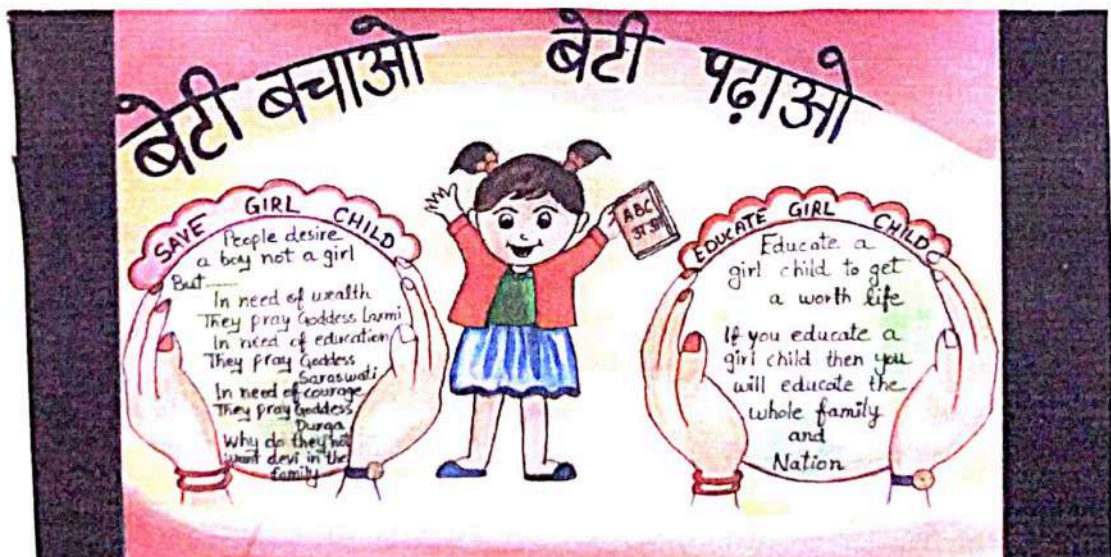 बेटी बचाओ बेटी पढ़ाओ
SAVE GIRL CHILD
People desire
a boy not a girl
But
In need of wealth
They pray Goddess Laxmi
In need of education
They pray Goddess
Saraswati
In need of courage
They pray Goddess
Durga
Why do they not
want devi in the
family
ABC
अ आ
EDUCATE GIRL CHILD
Educate a
girl child to get
a worth life
If you educate a
girl child then you
will educate the
whole family
and
Nation